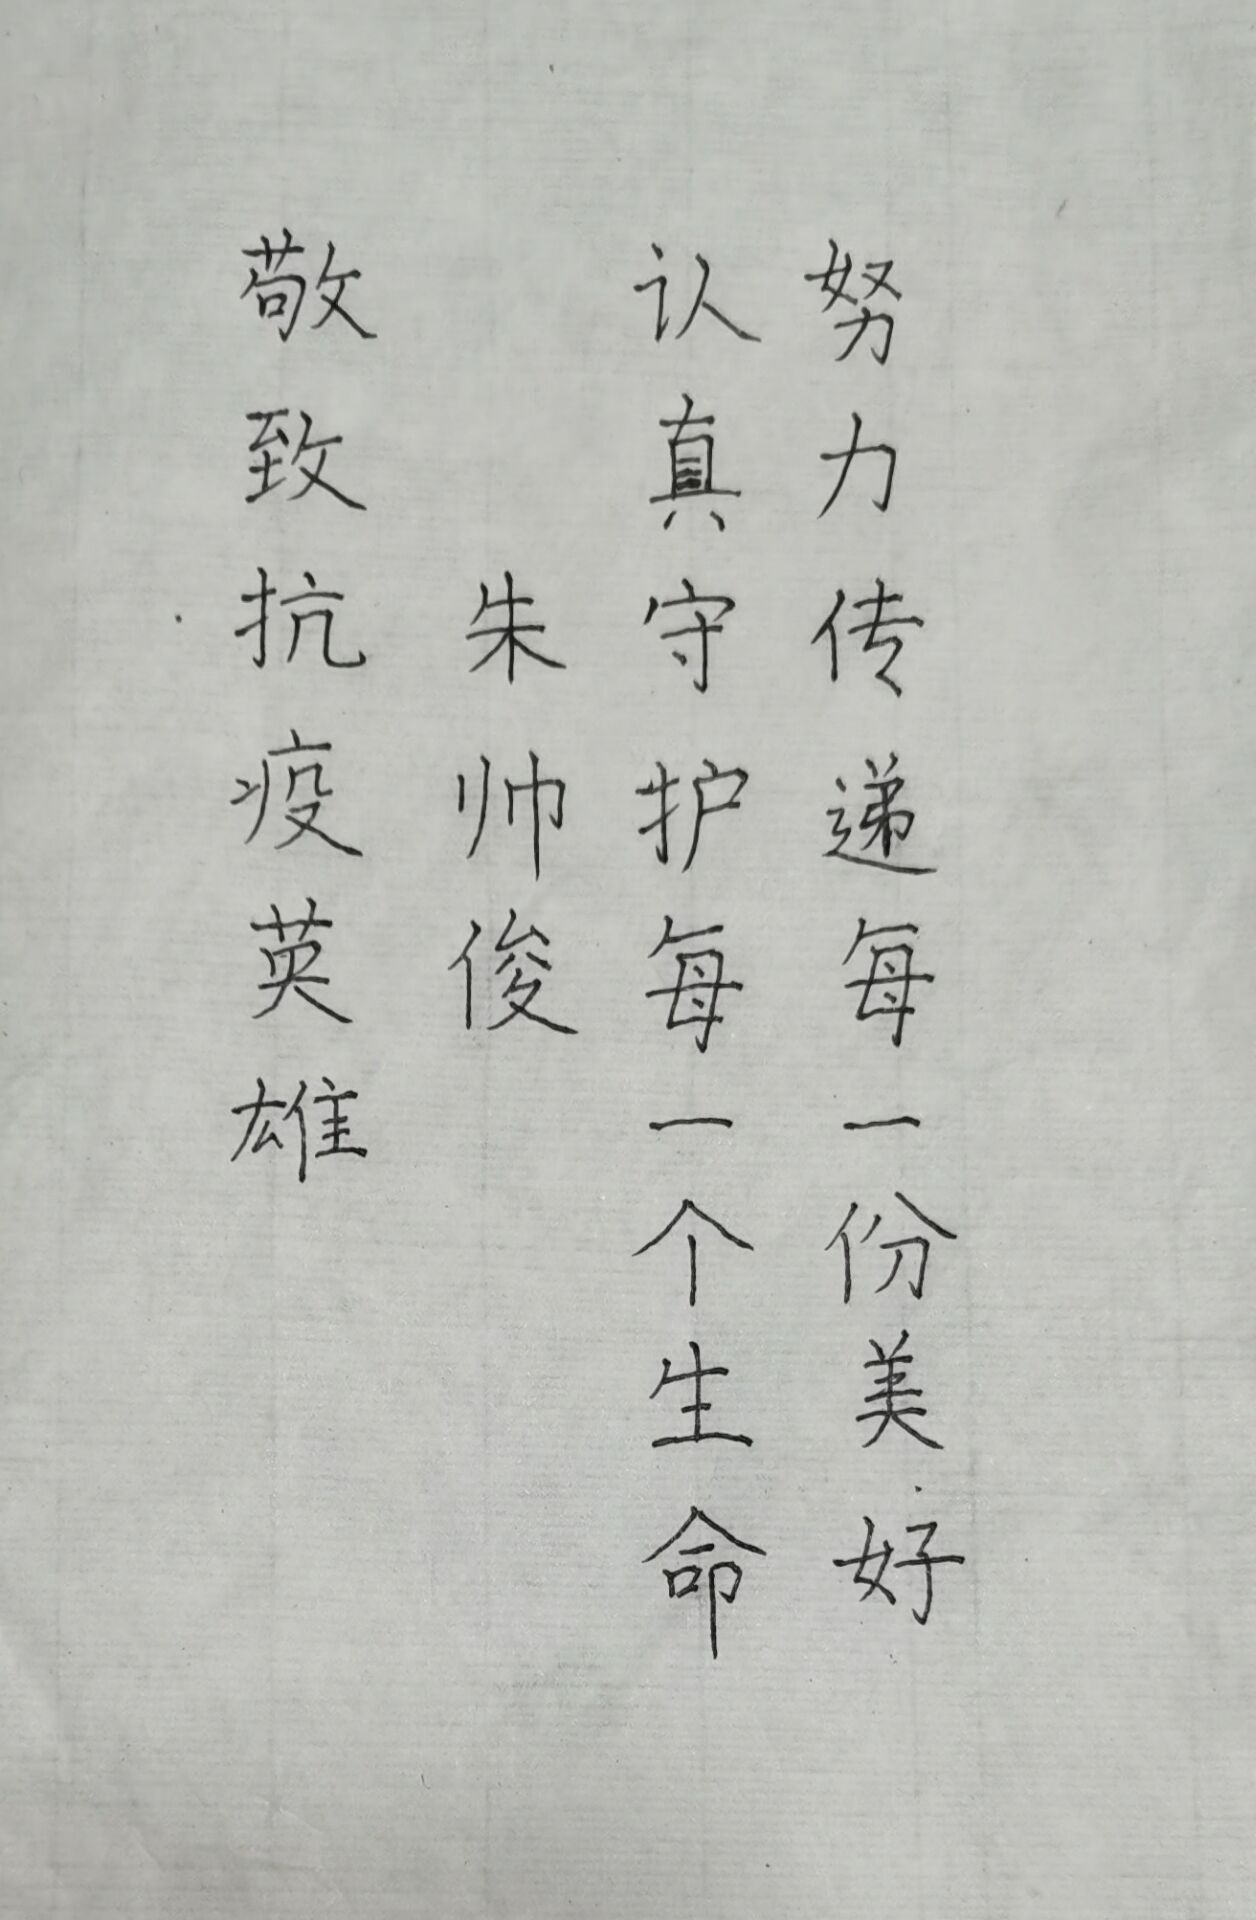 努力传递每一份美好
认真守护每一个生命
朱帅俊
敬致抗疫英雄